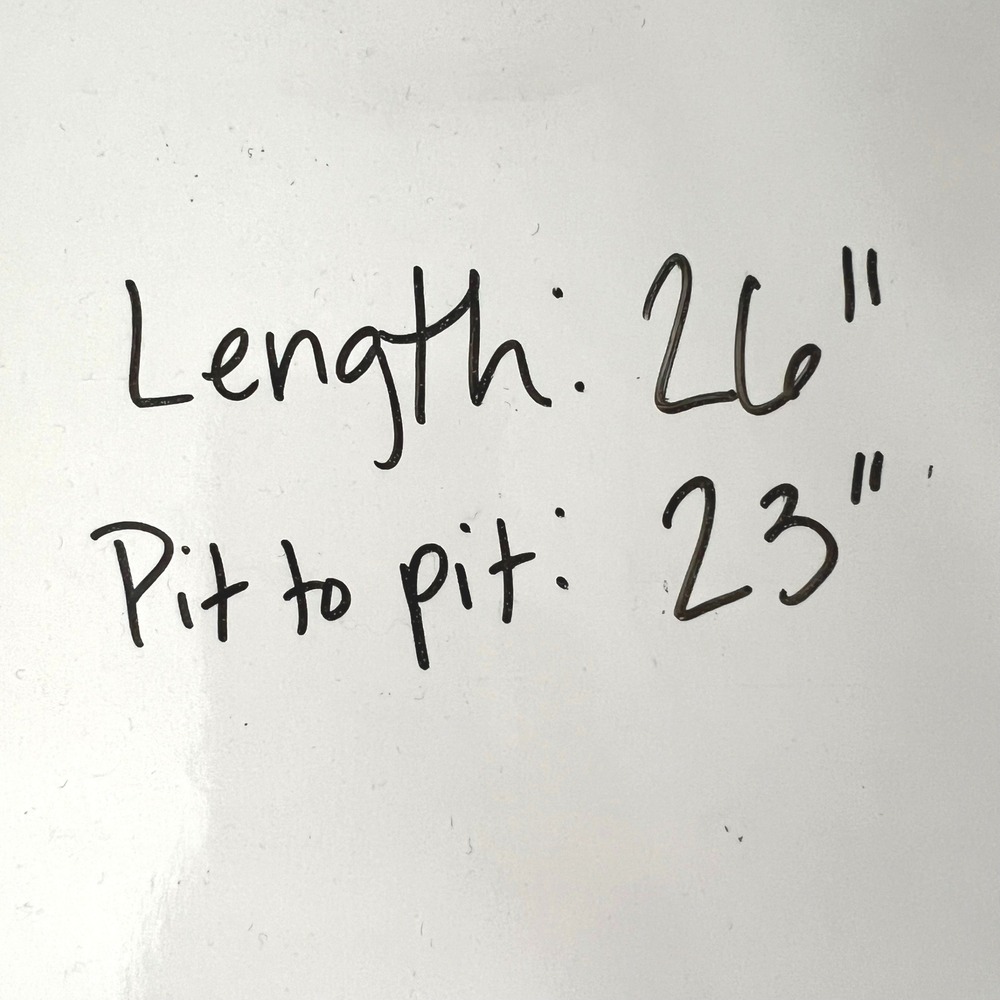 Length: 26"
Pit to pit: 23"